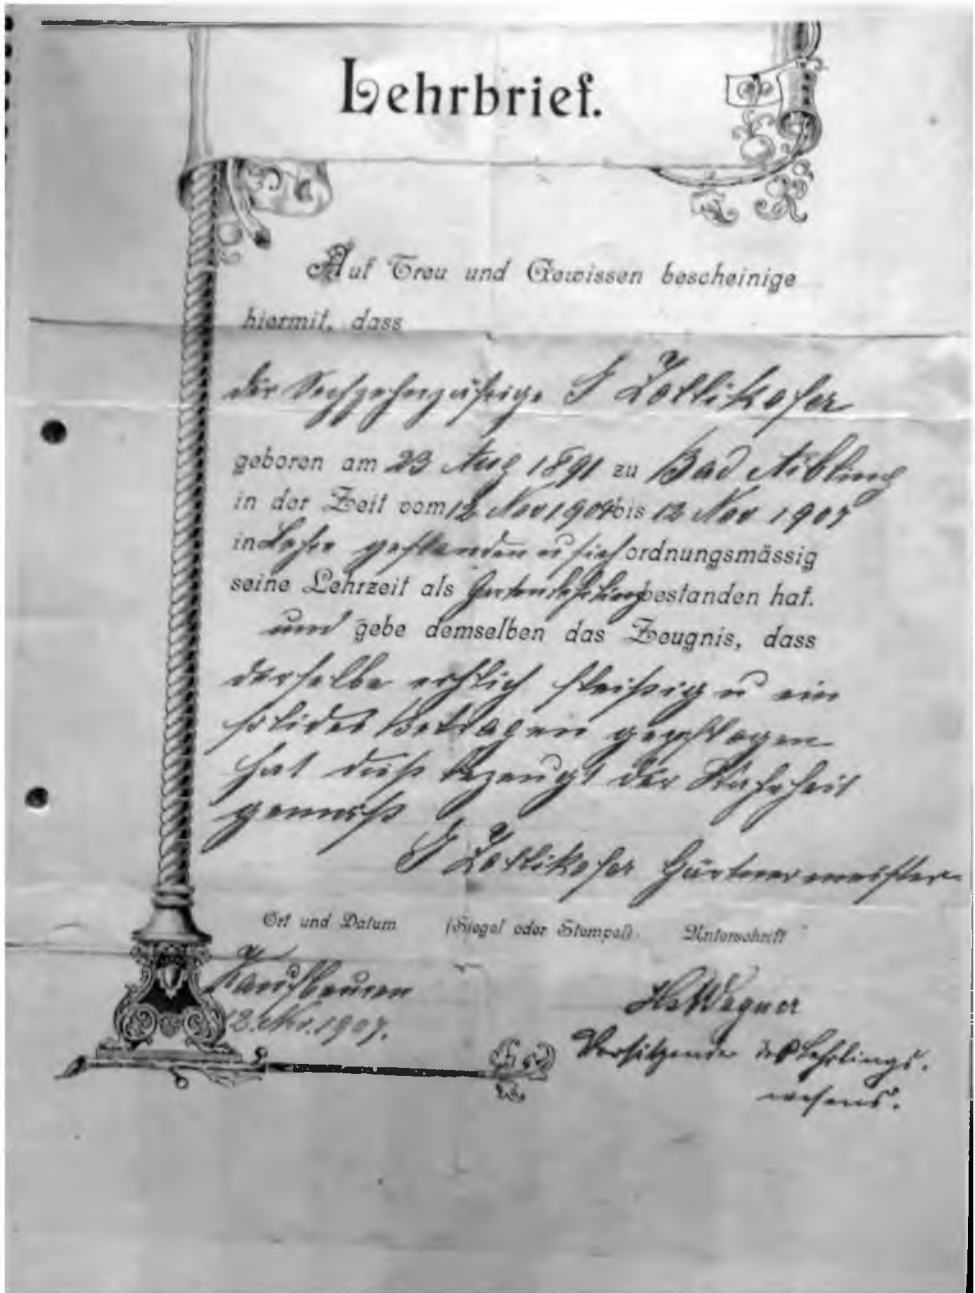 Lehrbrief.
Auf Treu und Gewissen bescheinige
hiermit, dass
der Sechzehnjährige G Zollikofer
geboren am 23 Aug 1891 zu Bad Aibling
in der Zeit vom 12 Nov 1904 bis 12 Nov 1907
in Lehre gestanden u sich ordnungsmässig
seine Lehrzeit als bestanden hat.
und gebe demselben das Zeugnis, dass
derselbe ehrlich fleißig u ein
solides Betragen gepflogen
hat dieß bezeugt der Wahrheit
gemäß
G Zollikofer Gärtnermeister
Ort und Datum (Siegel oder Stempel). Unterschrift
Kaufbeuren
12. Nov. 1907.
Wagner
Vorsitzender des Lehrlings-
wesens.